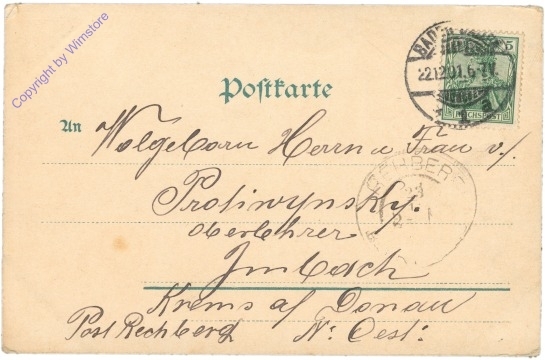 Copyright by Wimstore
BADEN-BADEN
5
22.12.01.6-7N
REICHSPOST
1 a
Postkarte
An
Wolgeborn Herrn u Frau v./
Protiwynsky.
Oberlehrer
Imbach
Krems a/ Donau
Post Rechberg
N: Oest:
REHBERG
23